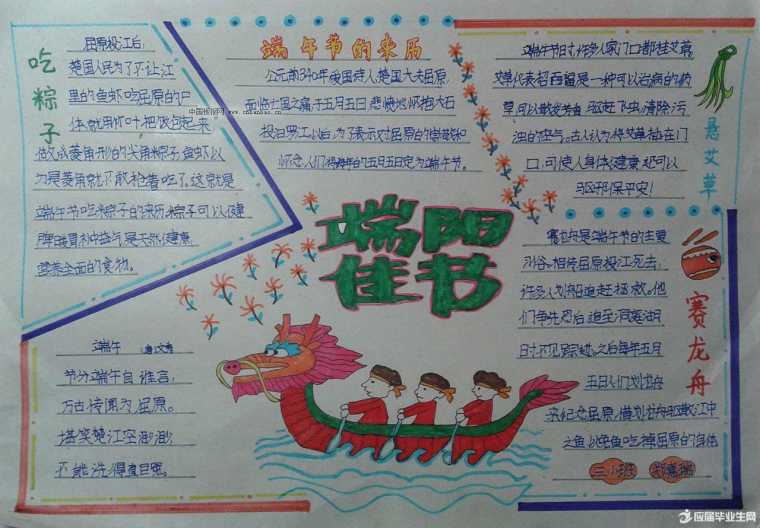 吃粽子
屈原投江后,
楚国人民为了不让江
里的鱼虾吃屈原的尸
体就用竹叶把饭包起来,
做成菱角形的尖角粽子,鱼虾以
为是菱角就不敢抢着吃了。这就是
端午节吃粽子的来历,粽子可以健
脾暖胃补中益气,是天然健康
营养全面的食物。
端午节的来历
公元前340年,爱国诗人、楚国大夫屈原,
面临亡国之痛于五月五日,悲愤地怀抱大石
投汨罗江以后,为了表示对屈原的崇敬和
怀念,人们将每年的五月五日定为端午节。
中国板报网
悬艾草
端午节时许多人家门口都挂艾草,
艾草代表招百福,是一种可以治病的药
草,可以散发芳香,驱赶飞虫,清除污
浊的空气。古人认为将艾草插在门
口,可使人身体健康,还可以
驱邪保平安!
端阳
佳节
赛龙舟
赛龙舟是端午节的主要
习俗,相传屈原投江死去,
许多人划船追赶拯救。他
们争先恐后,追至洞庭湖
时不见踪迹,之后每年五月
五日人们划龙舟
来纪念屈原,借划龙舟驱散江中
之鱼,以免鱼吃掉屈原的身体
端午
节分端午自谁言,
万古传闻为屈原。
堪笑楚江空渺渺,
不能洗得直臣冤。
应届毕业生网